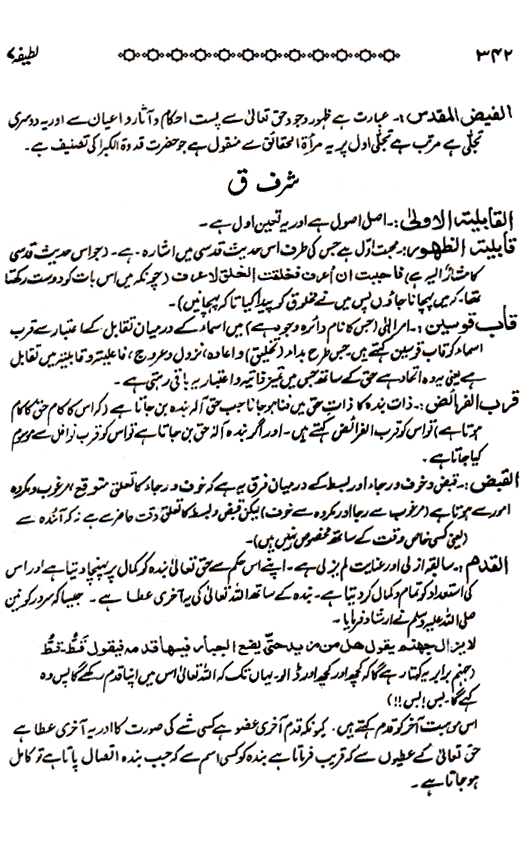 ۳۴۲ لطیفہ ۷
الفیض المقدس :۔ عبارت ہے ظہور وجود حق تعالیٰ سے پست احکام و آثار و اعیان سے اور یہ دوسری
تجلّی ہے مرتب ہے تجلّی اول پر یہ مرأۃ الحقائق سے منقول ہے جو حضرت قدوۃ الکبرا کی تصنیف ہے۔
شرف ق
القابلیۃ الاولیٰ :۔ اصل اصول ہے اور یہ تعین اول ہے۔
قابلیۃ الظہور :۔ محبت اوّل ہے جس کی طرف اس حدیث قدسی میں اشارہ ہے۔ (جو اس حدیث قدسی
کا مشارٌ الیہ ہے) فاحببت ان اعرف فخلقت الخلق لاعرف (چونکہ میں اس بات کو دوست رکھتا
تھا کہ میں پہچانا جاؤں پس میں نے مخلوق کو پیدا کیا تاکہ پہچانیں)۔
قاب قوسین :۔ امر الٰہی (جس کا نام دائرہ وجود ہے) میں اسماء کے درمیان تقابل کے اعتبار سے قرب
اسماء کو قاب قوسین کہتے ہیں جس طرح بداء (تخلیق) و اعادہ، نزول و عروج، فاعلیۃ و قابلیۃ میں تقابل
ہے یعنی یہ وہ اتحاد ہے حق کے ساتھ جس میں تمیز ذاتیہ و اعتباریہ باقی رہتی ہے۔
قرب الفرائض :۔ ذات بندہ کا ذات حق میں فنا ہو جانا جب حق آلہ بندہ بن جاتا ہے (کہ اس کا کام حق کا کام
ہوتا ہے) تو اس کو قرب الفرائض کہتے ہیں۔ اور اگر بندہ آلہ حق بن جاتا ہے تو اس کو قرب نوافل سے موسوم
کیا جاتا ہے۔
القبض :۔ قبض و خوف و رجاء اور بسط کے درمیان فرق یہ ہے کہ خوف و رجاء کا تعلق متوقع مرغوب و مکروہ
امور سے ہوتا ہے (مرغوب سے رجا اور مکروہ سے خوف) لیکن قبض و بسط کا تعلق وقت حاضر سے ہے نہ کہ آئندہ سے
(یعنی کسی خاص وقت کے ساتھ مخصوص نہیں ہیں)۔
القدم :۔ سابقہ ازلی اور عنایت لم یزلی ہے۔ اپنے اس حکم سے حق تعالیٰ بندہ کو کمال پر پہنچا دیتا ہے اور اس
کی استعداد کو تمام و کمال کر دیتا ہے۔ بندہ کے ساتھ اللہ تعالیٰ کی یہ آخری عطا ہے۔ جیسا کہ سرور کونین
صلی اللہ علیہ وسلم نے ارشاد فرمایا۔
لا یزال جہنم یقول ھل من مزید حتّی یضع الجبار فیہا قدمہ فیقول قَطُّ قَطُّ
(جہنم برابر یہ کہتا رہے گا کہ کچھ اور کچھ اور ڈالو۔ یہاں تک کہ اللہ تعالیٰ اس میں اپنا قدم رکھے گا پس وہ
کہے گا۔ بس! بس!!)
اس موہبت آخر کو قدم کہتے ہیں۔ کیونکہ قدم آخری عضو ہے کسی شے کی صورت کا اور یہ آخری عطا ہے
حق تعالیٰ کے عطیوں سے کہ قریب فرماتا ہے بندہ کو کسی اسم سے کہ جب بندہ اتصال پاتا ہے تو کامل
ہو جاتا ہے۔